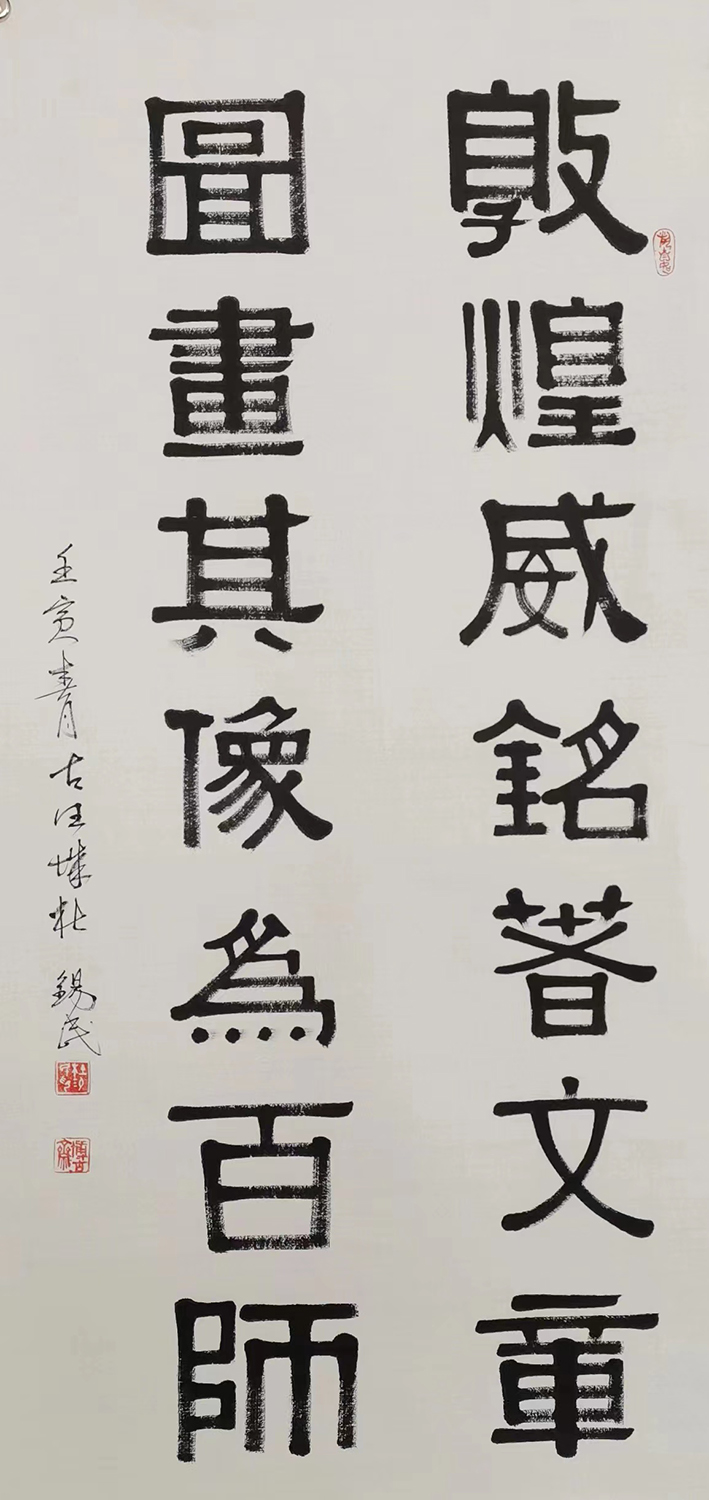 敦煌威銘著文章
圖畫其像為百師
壬寅青古汪城杜錫民